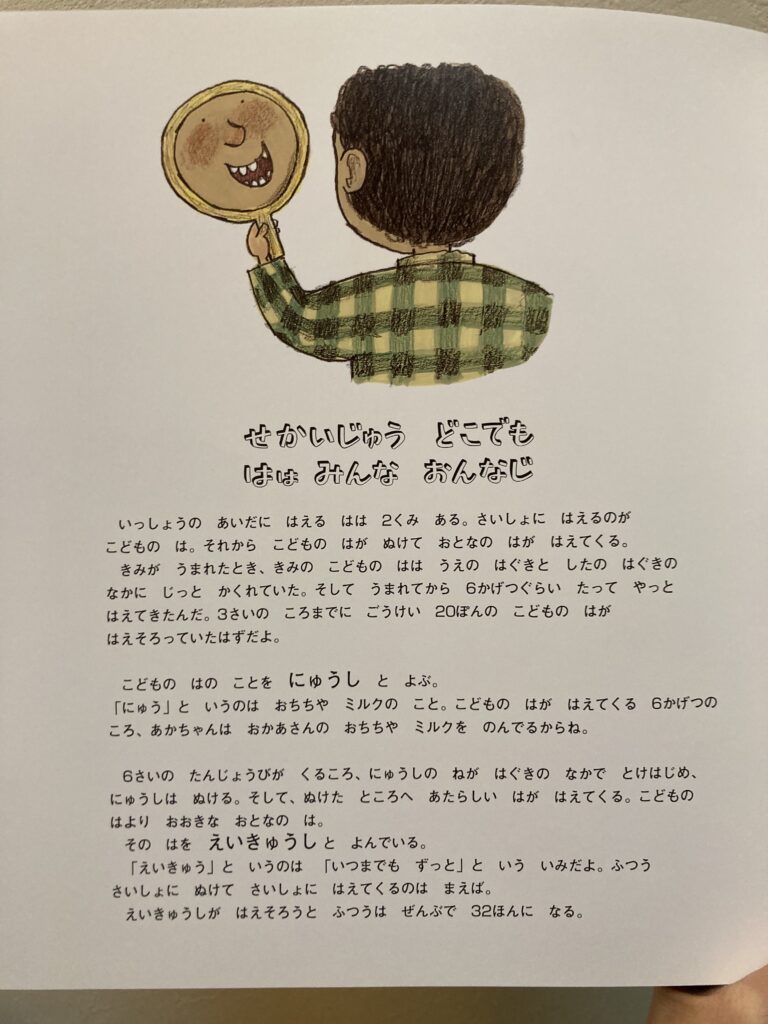 せかいじゅう　どこでも
はは　みんな　おんなじ
いっしょうの　あいだに　はえる　はは　2くみ　ある。さいしょに　はえるのが
こどもの　は。それから　こどもの　はが　ぬけて　おとなの　はが　はえてくる。
きみが　うまれたとき、きみの　こどもの　はは　うえの　はぐきと　したの　はぐきの
なかに　じっと　かくれていた。そして　うまれてから　6かげつぐらい　たって　やっと
はえてきたんだ。3さいの　ころまでに　ごうけい　20ぽんの　こどもの　はが
はえそろっていたはずだよ。
こどもの　はの　ことを　にゅうし　と　よぶ。
「にゅう」と　いうのは　おちちや　ミルクの　こと。こどもの　はが　はえてくる　6かげつの
ころ、あかちゃんは　おかあさんの　おちちや　ミルクを　のんでるからね。
6さいの　たんじょうびが　くるころ、にゅうしの　ねが　はぐきの　なかで　とけはじめ、
にゅうしは　ぬける。そして、ぬけた　ところへ　あたらしい　はが　はえてくる。こどもの
はより　おおきな　おとなの　は。
その　はを　えいきゅうしと　よんでいる。
「えいきゅう」と　いうのは　「いつまでも　ずっと」と　いう　いみだよ。ふつう
さいしょに　ぬけて　さいしょに　はえてくるのは　まえば。
えいきゅうしが　はえそろうと　ふつうは　ぜんぶで　32ほんに　なる。